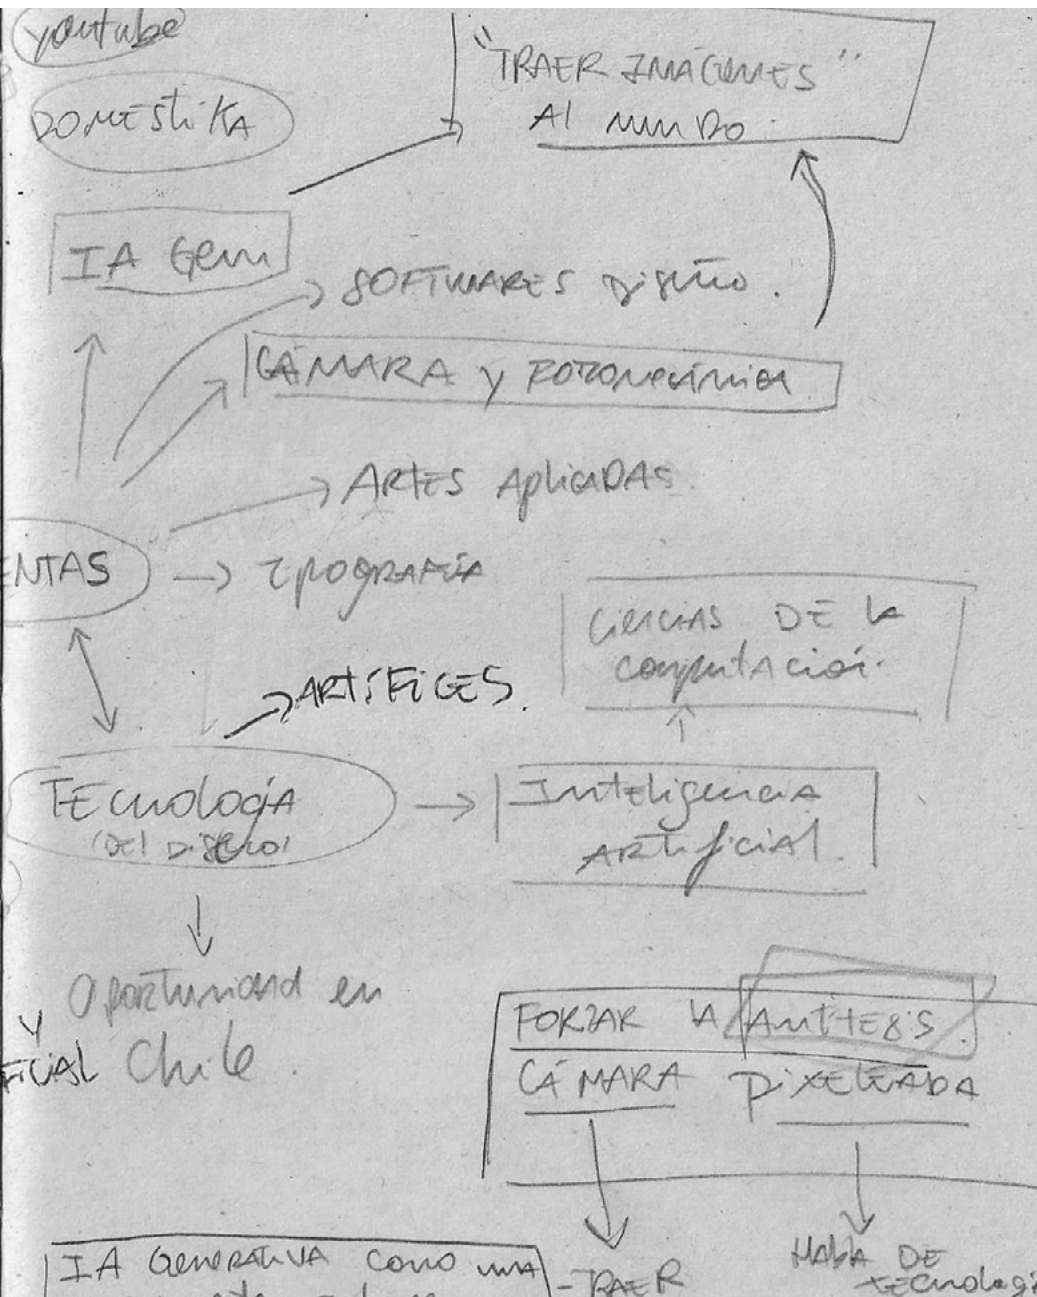 youtube
DOMESTIKA
"TRAER IMÁGENES"
Al MUNDO.
IA Gen
SOFTWARES DISEÑO.
CÁMARA y FOTOMECÁNICA
ARTES APLICADAS.
ENTAS
TIPOGRAFÍA
CIENCIAS DE LA
computación.
ARTÍFICES.
TECNOLOGÍA
(DEL DISEÑO)
Inteligencia
ARTIFICIAL.
Oportunidad en
Chile.
Y
FICIAL
FORZAR LA ANTÍTESIS
CÁMARA PIXELEADA
IA GENERATIVA COMO UNA
-TRAER
HABLA DE
TECNOLOGÍ